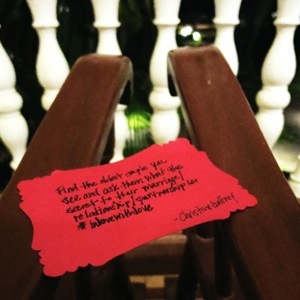 Find the oldest couple you
see and ask them what the
secret to their marriage/
relationship/partnership is.
#inlovewithlove